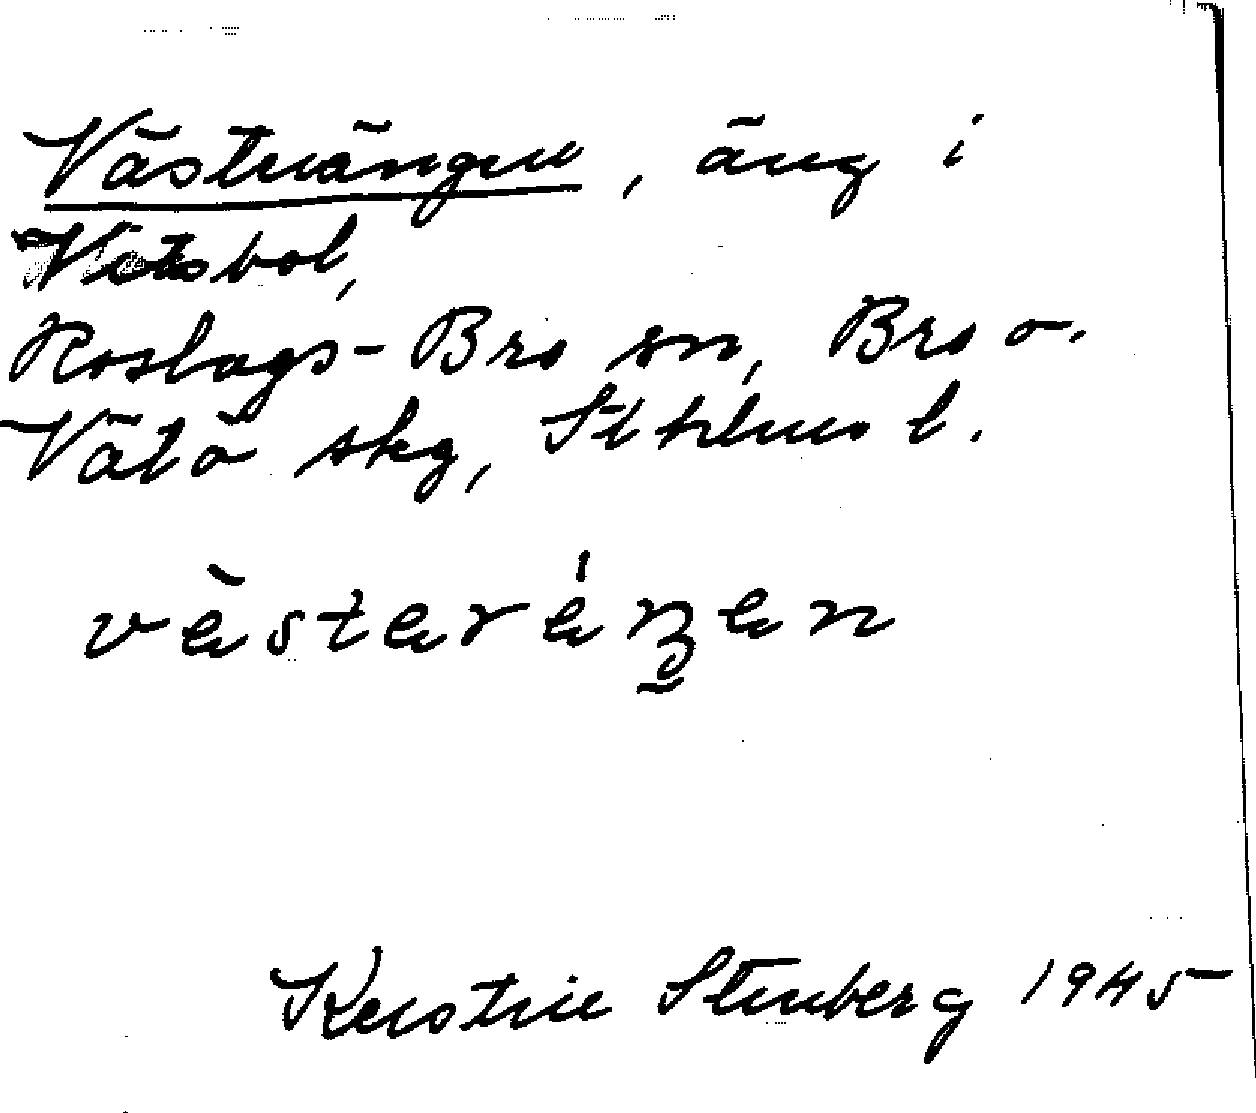 Västerängen, äng i
Vetsbol,
Roslags-Bro sn, Bro o.
Vätö skg, Sthlms l.
vèsteréŋen
Kerstin Stenberg 1945